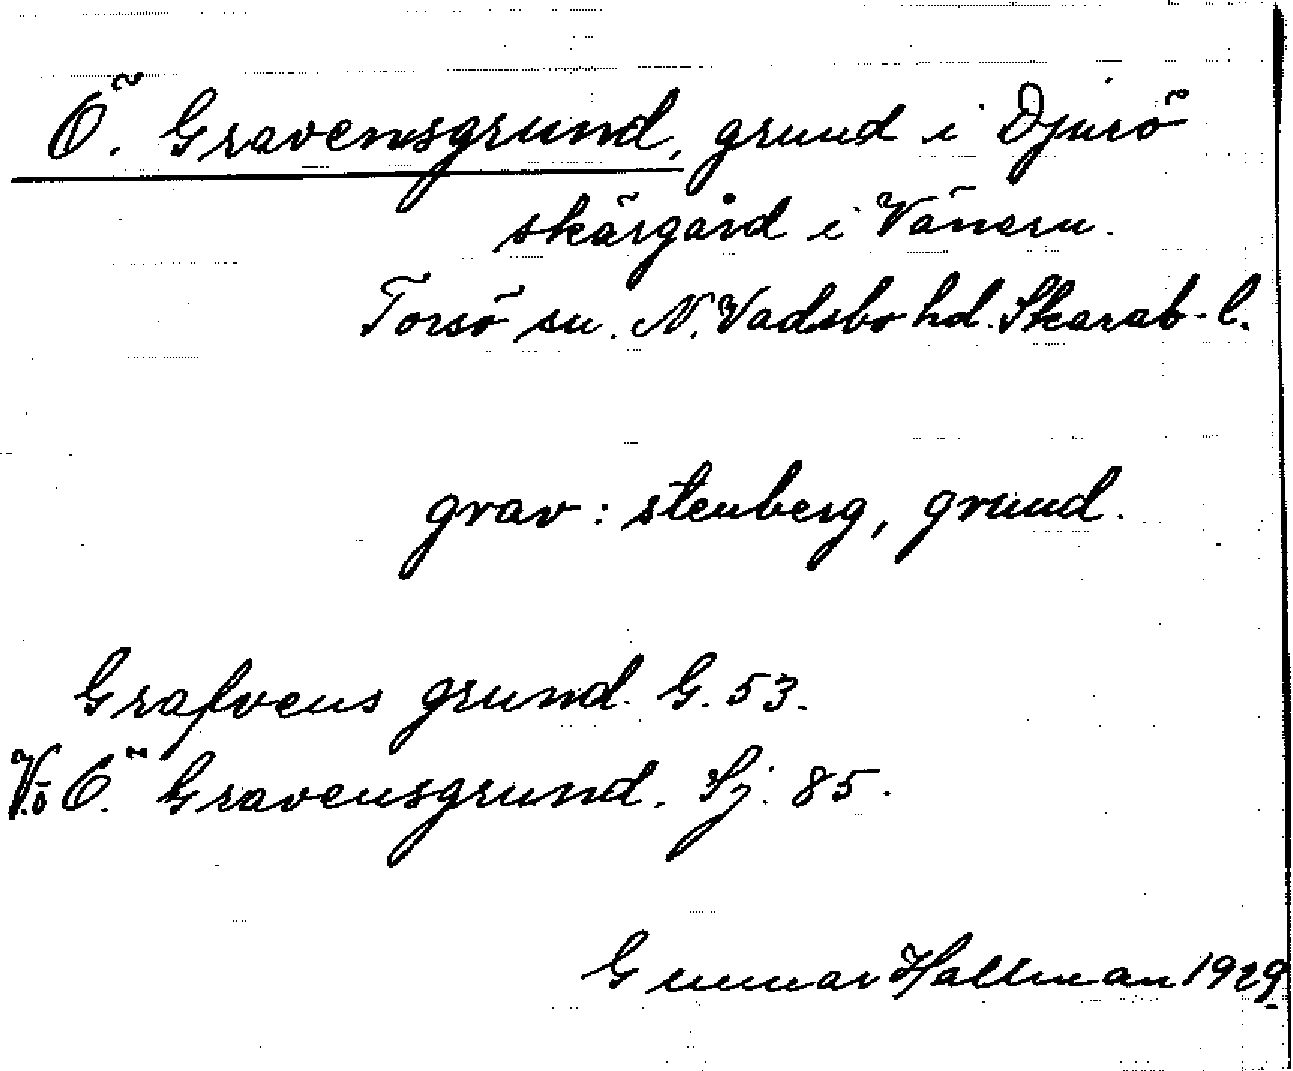 Ö. Gravensgrund, grund i Djurö
skärgård i Vänern.
Torsö sn. N. Vadsbo hd. Skarab. l.
grav: stenberg, grund.
Grafvens grund. G. 53.
V. o Ö. Gravensgrund. Sj. 85.
Gunnar Hallman 1929